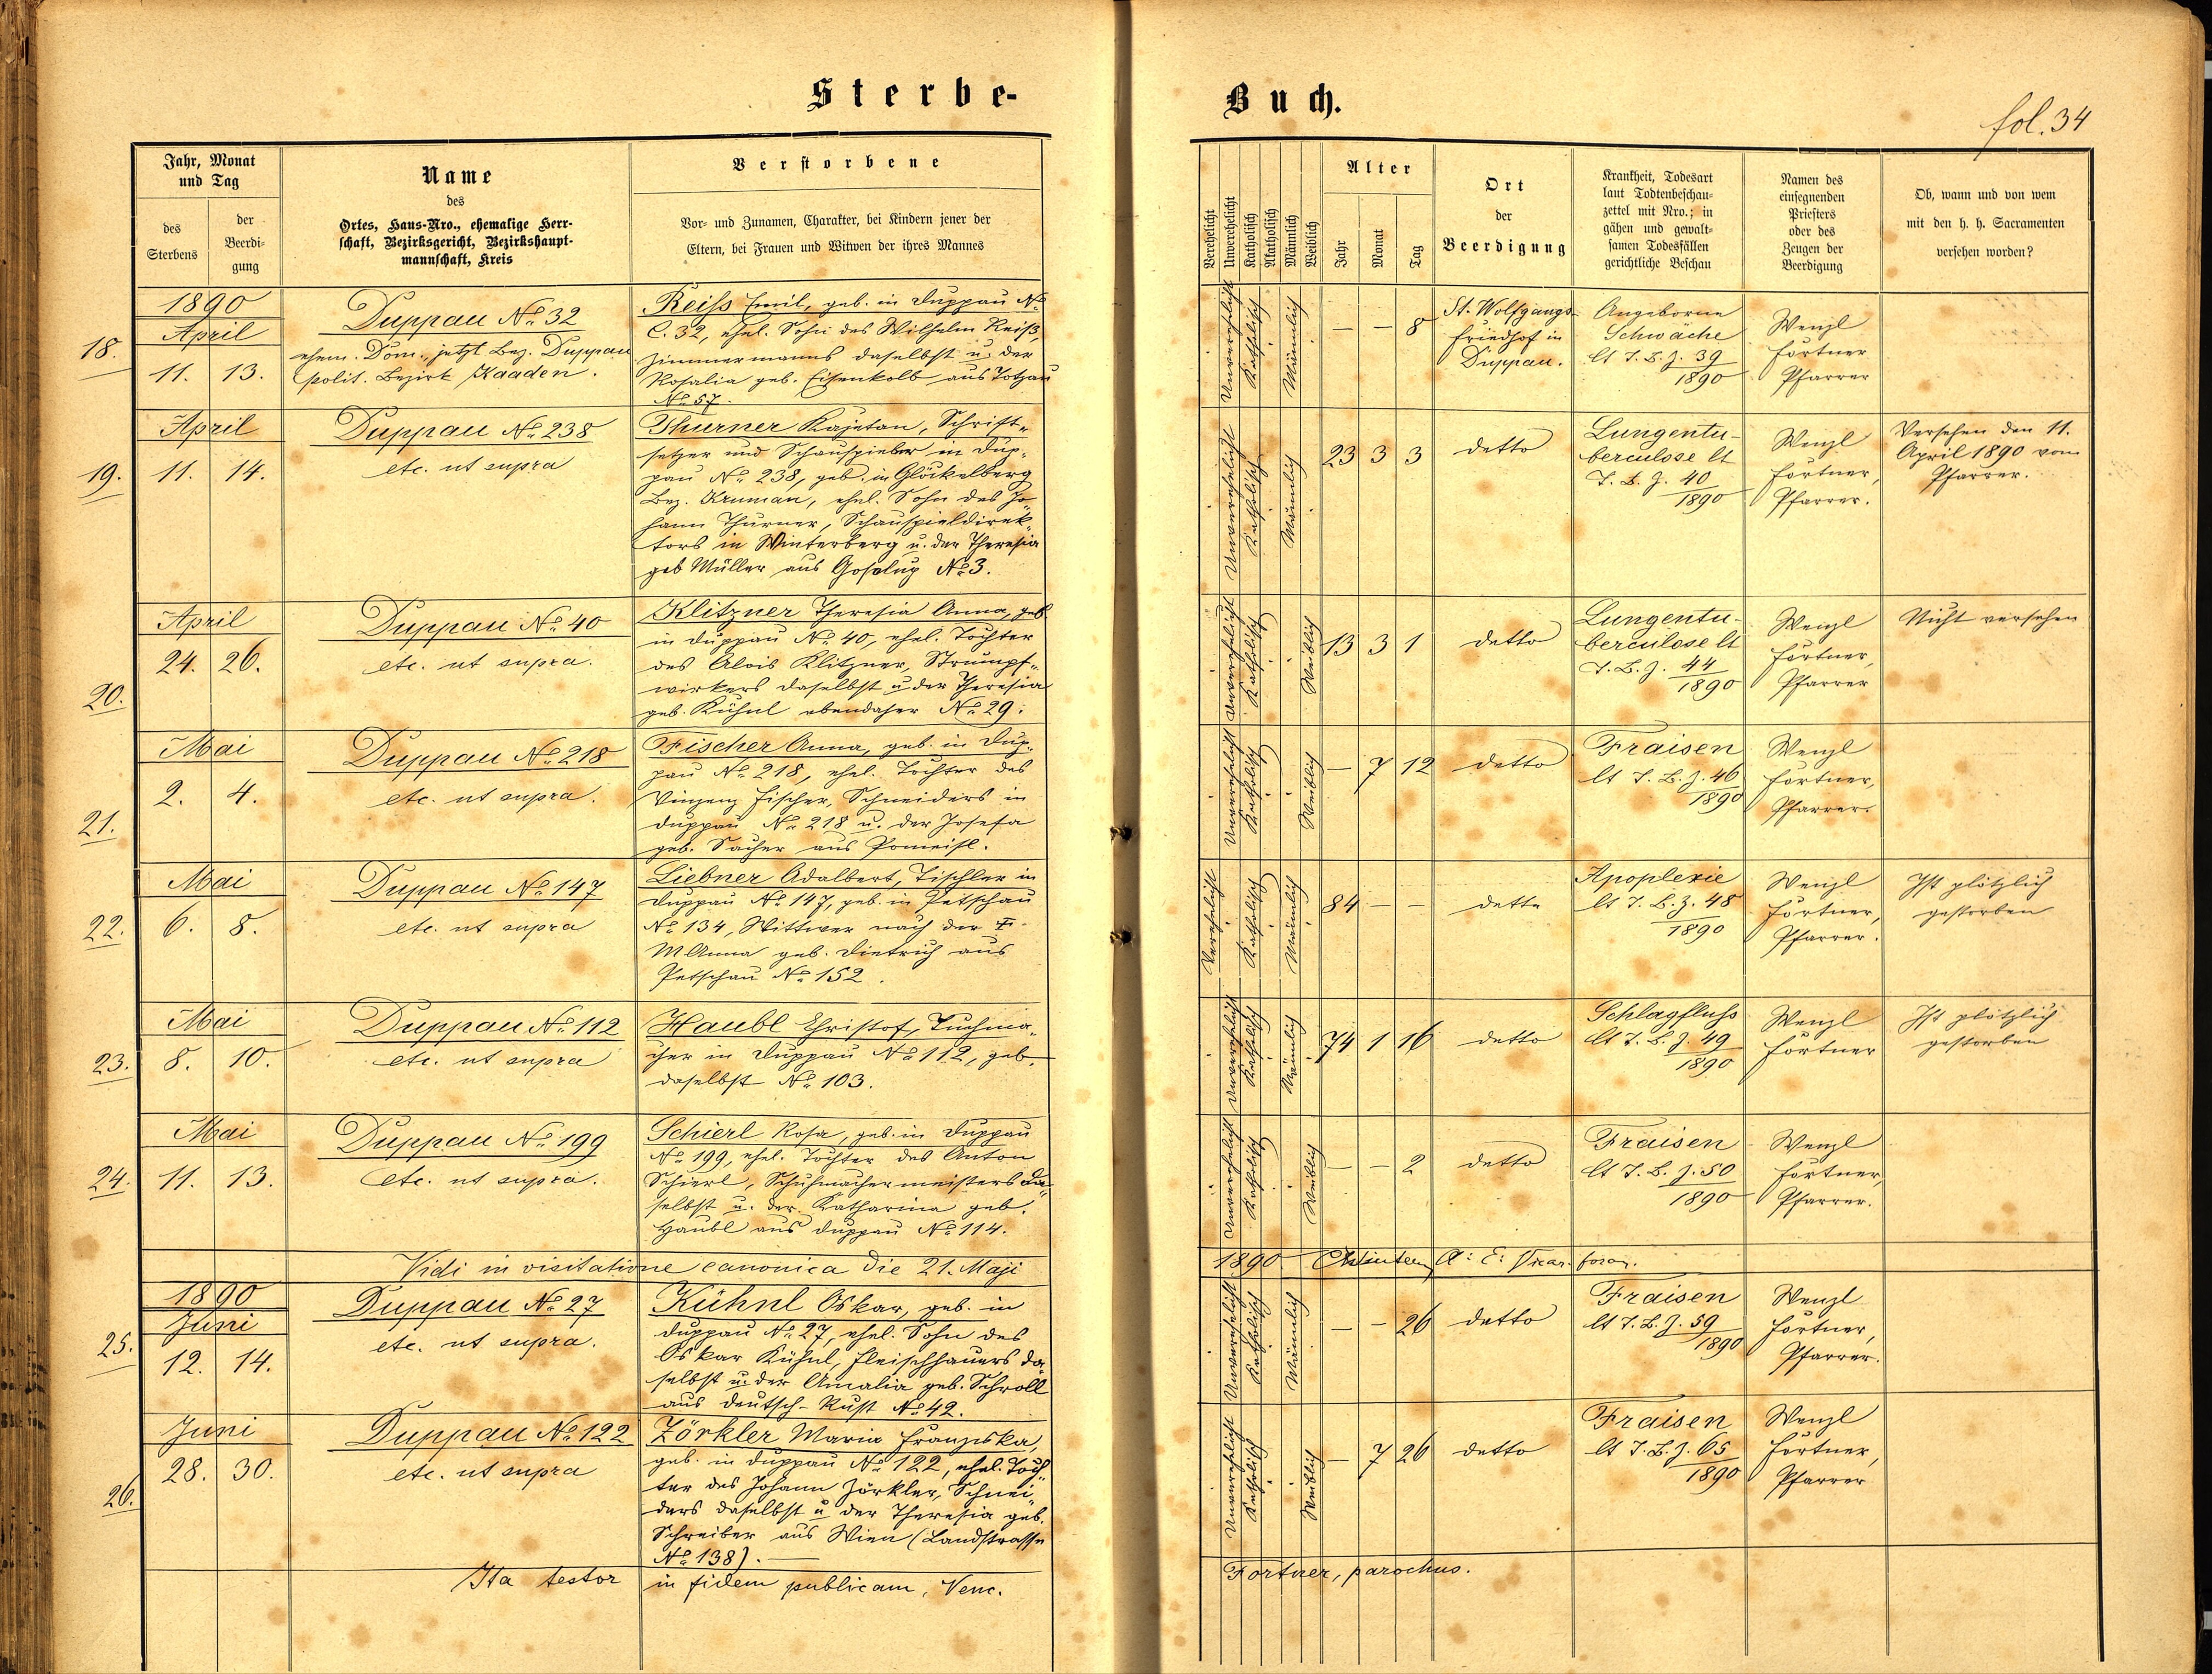 Sterbe-
Buch.
fol. 34
Jahr, Monat
und Tag
des
Sterbens
der
Beerdi-
gung
Name
des
Ortes, Haus-Nro., ehemalige Herr-
schaft, Bezirksgericht, Bezirkshaupt-
mannschaft, Kreis
Verstorbene
Vor- und Zunamen, Charakter, bei Kindern jener der
Eltern, bei Frauen und Witwen der ihres Mannes
Verehelicht
Unverehelicht
Katholisch
Akatholisch
Männlich
Weiblich
Alter
Jahr
Monat
Tag
Ort
der
Beerdigung
Krankheit, Todesart
laut Todtenbeschau-
zettel mit Nro.; in
gähen und gewalt-
samen Todesfällen
gerichtliche Beschau
Namen des
einsegnenden
Priesters
oder des
Zeugen der
Beerdigung
Ob, wann und von wem
mit den h. h. Sacramenten
versehen worden?
18.
1890
April
11. 13.
Duppau No. 32
ehem. Dom., jetzt Bez. Duppau
polit. Bezirk Kaaden.
Reiß Emil, geb. in Duppau No
C. 32, ehel. Sohn des Wilhelm Reiß,
Zimmermanns daselbst u. der
Rosalia geb. Eisenkolb aus Totzau
No 57.
Unverehelicht
Katholisch
Männlich
— — 8
St. Wolfgangs-
friedhof in
Duppau.
Angeborne
Schwäche
lt T. B. Z. 39
1890
Wenzl
Förtner
Pfarrer
19.
April
11. 14.
Duppau No. 238
etc. ut supra
Thurner Kajetan, Schrift-
setzer und Schauspieler in Dup-
pau No. 238, geb. in Glöckelberg
Bez. Kruman, ehel. Sohn des Jo-
hann Thurner, Schauspieldirek-
tors in Winterberg u. der Theresia
geb Müller aus No 3.
Unverehelicht
Katholisch
Männlich
23 3 3
detto
Lungentu-
berculose lt
T. B. Z. 40
1890
Wenzl
Förtner,
Pfarrer.
Versehen den 11.
April 1890 vom
Pfarrer.
20.
April
24. 26.
Duppau No. 40
etc. ut supra.
Klitzner Theresia Anna, geb
in Duppau No. 40, ehel. Tochter
des Alois Klitzner, Strumpf-
wirkers daselbst u der Theresia
geb. Kühnl ebendaher No. 29.
Unverehelicht
Katholisch
Weiblich
13 3 1
detto
Lungentu-
berculose lt
T. B. Z. 44
1890
Wenzl
Förtner,
Pfarrer
Nicht versehen
21.
Mai
2. 4.
Duppau No. 218
etc. ut supra.
Fischer Anna, geb. in Dup-
pau No. 218, ehel. Tochter des
Vinzenz Fischer, Schneiders in
Duppau No. 218 u. der Josefa
geb. Sacher aus Pomeisl.
Unverehelicht
Katholisch
Weiblich
— 7 12
detto
Fraisen
lt T. B. Z. 46
1890
Wenzl
Förtner,
Pfarrer.
22.
Mai
6. 8.
Duppau No. 147
etc. ut supra
Liebner Adalbert, Tischler in
Duppau No. 147, geb. in Petschau
No. 134, Wittwer nach der
M Anna geb. Dietrich aus
Petschau No. 152.
Verehelicht
Katholisch
Männlich
84 — —
detto
Apoplexie
lt T. B. Z. 48
1890
Wenzl
Förtner,
Pfarrer.
Ist plötzlich
gestorben
23.
Mai
8. 10.
Duppau No. 112
etc. ut supra
Haubl Christof, Tuchma-
cher in Duppau No. 112, geb.
daselbst No. 103.
Unverehelicht
Katholisch
Männlich
74 1 16
detto
Schlagfluß
lt T. B. Z. 49
1890
Wenzl
Förtner
Ist plötzlich
gestorben
24.
Mai
11. 13.
Duppau No. 199
etc. ut supra.
Schierl Rosa, geb. in Duppau
No. 199, ehel. Tochter des Anton
Schierl, Schuhmachermeisters da-
selbst u. der Katharina geb.
Haubl aus Duppau No. 114.
Unverehelicht
Katholisch
Weiblich
— — 2
detto
Fraisen
lt T. B. Z. 50
1890
Wenzl
Förtner,
Pfarrer.
Vidi in visitatione canonica die 21. Maji
1890
25.
1890
Juni
12. 14.
Duppau No. 27
etc. ut supra.
Kühnl Oskar, geb. in
Duppau No. 27, ehel. Sohn des
Oskar Kühnl, Fleischhauers da-
selbst u. der Amalia geb. Schroll
aus Deutsch-Rust No. 42.
Unverehelicht
Katholisch
Männlich
— — 26
detto
Fraisen
lt T. B. Z. 59
1890
Wenzl
Förtner,
Pfarrer.
26.
Juni
28. 30.
Duppau No. 122
etc. ut supra
Zörkler Maria Franziska,
geb. in Duppau No. 122, ehel. Toch-
ter des Johann Zörkler, Schnei-
ders daselbst u der Theresia geb.
Schreiber aus Wien (Landstrasse
No. 138). —
Unverehelicht
Katholisch
Weiblich
— 7 26
detto
Fraisen
lt T. B. Z. 65
1890
Wenzl
Förtner,
Pfarrer
Ita testor in fidem publicam, Venc.
Förtner, parochus.